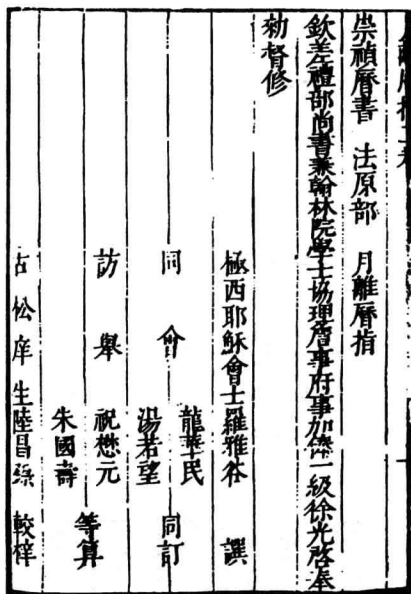 月離曆指一卷
崇禎曆書 法原部 月離曆指
欽差禮部尚書兼翰林院學士協理詹事府事加俸一級徐光啓奉
勑督修
極西耶穌會士羅雅谷 譔
同會 龍華民 湯若望 同訂
訪舉 祝懋元 朱國壽 等算
古松庠生陸昌 較梓